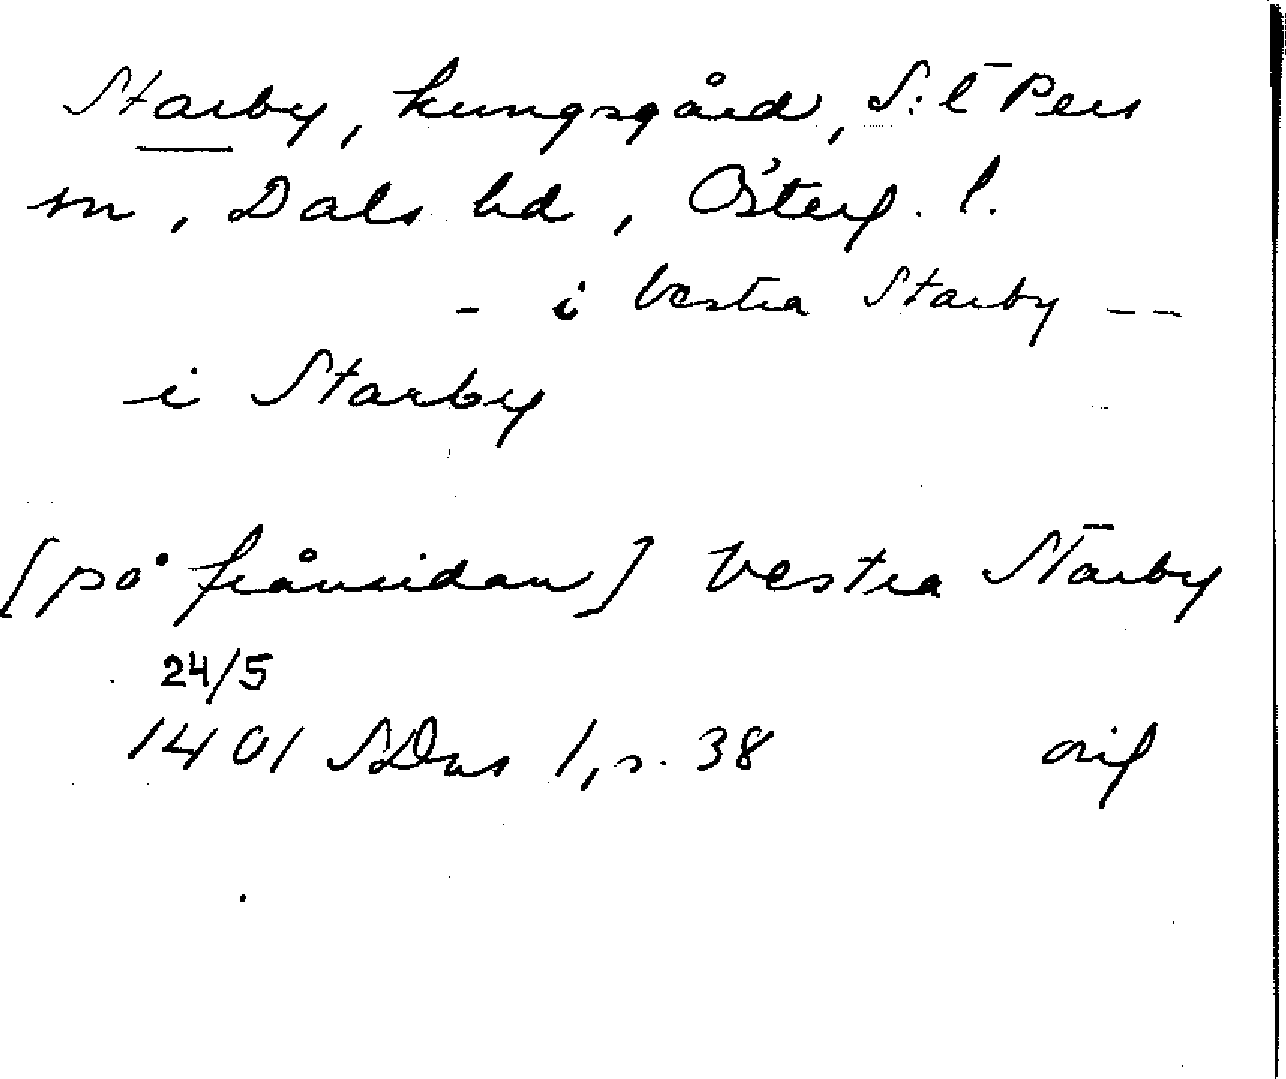 Starby, kungsgård, S:t Pers
sn, Dals hd, Österg. l.
- i Vestra Starby --
i Starby
[på frånsidan] Vestra Starby
24/5
1401 SDns 1, s. 38 orig